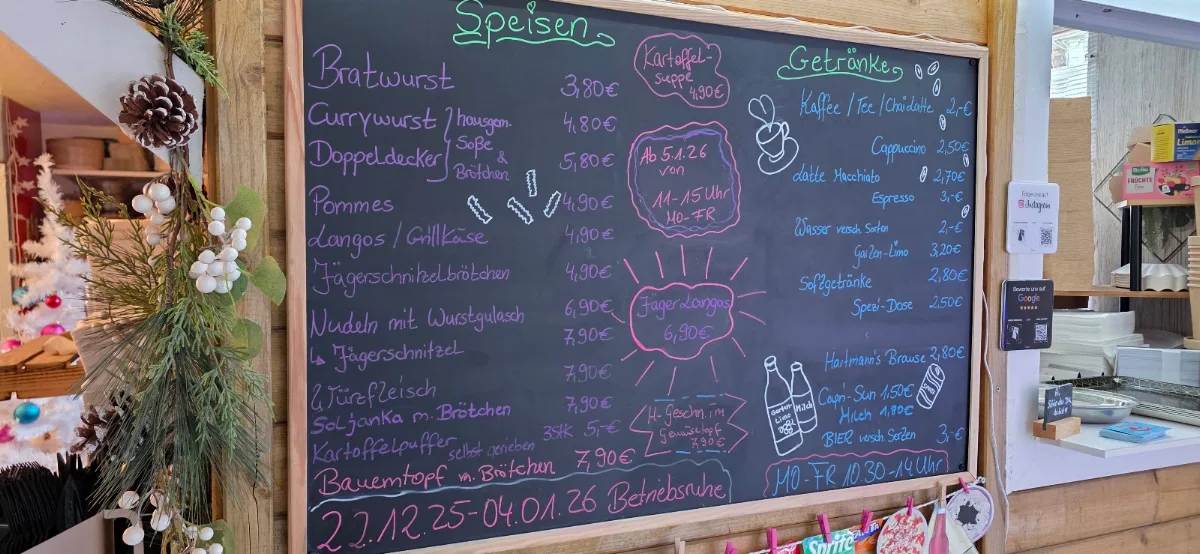 Speisen
Bratwurst 3,80€
Currywurst 4,80€
Doppeldecker 5,80€
hausgem.
Soße
&
Brötchen
Pommes 4,90€
Langos / Grillkäse 4,90€
Jägerschnitzelbrötchen 4,90€
Nudeln mit Wurstgulasch 6,90€
↳ Jägerschnitzel 7,90€
↳ Würzfleisch 7,90€
Soljanka m. Brötchen 7,90€
Kartoffelpuffer selbst gerieben 3Stk 5,-€
Bauerntopf m. Brötchen 7,90€
22.12.25-04.01.26 Betriebsruhe
Kartoffel-
suppe
4,90€
Ab 5.1.26
von
11-15 Uhr
MO-FR
Jäger Langos
6,90€
H. Geschn. im
Gemüsetopf
7,90€
Getränke
Kaffee / Tee / Chai Latte 2,-€
Cappuccino 2,50€
Latte Macchiato 2,70€
Espresso 3,-€
Wasser versch. Sorten 2,-€
Garten-Limo 3,20€
Softgetränke 2,80€
Spezi-Dose 2,50€
Hartmann's Brause 2,80€
Capri-Sun 1,50€
Milch 1,80€
BIER versch. Sorten 3,-€
Garten
Limo
Milch
MO-FR 10.30-14 Uhr
Instagram
Bewerte uns auf
Google
FRÜCHTE
Sprite